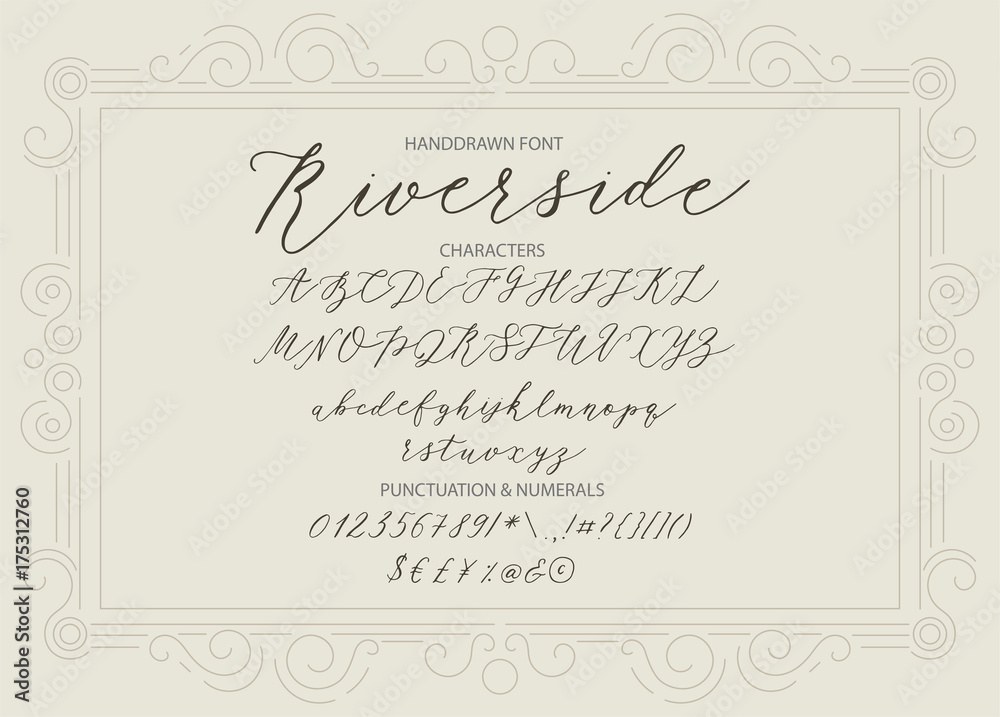 HANDDRAWN FONT
Riverside
CHARACTERS
ABCDEFGHIJKL
MNOPQRSTUVXYZ
abcdefghijklmnopq
rstuvxyz
PUNCTUATION & NUMERALS
012356789/*\.,!#?{}[]()
$€£¥%@&©
Adobe Stock | #175312760